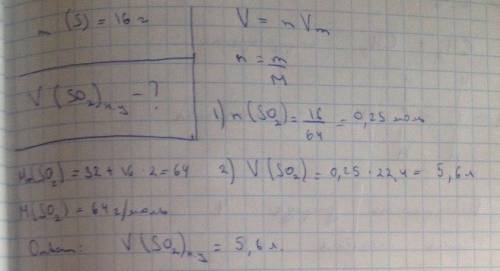 m (S) = 16 г
V(SO₂)н.у - ?
V = n Vm
n = m/M
1) n(SO₂) = 16/64 = 0,25 моль
Mr(SO₂) = 32 + 16 · 2 = 64
2) V(SO₂) = 0,25 · 22,4 = 5,6 л
M(SO₂) = 64 г/моль
Ответ: V(SO₂)н.у = 5,6 л.